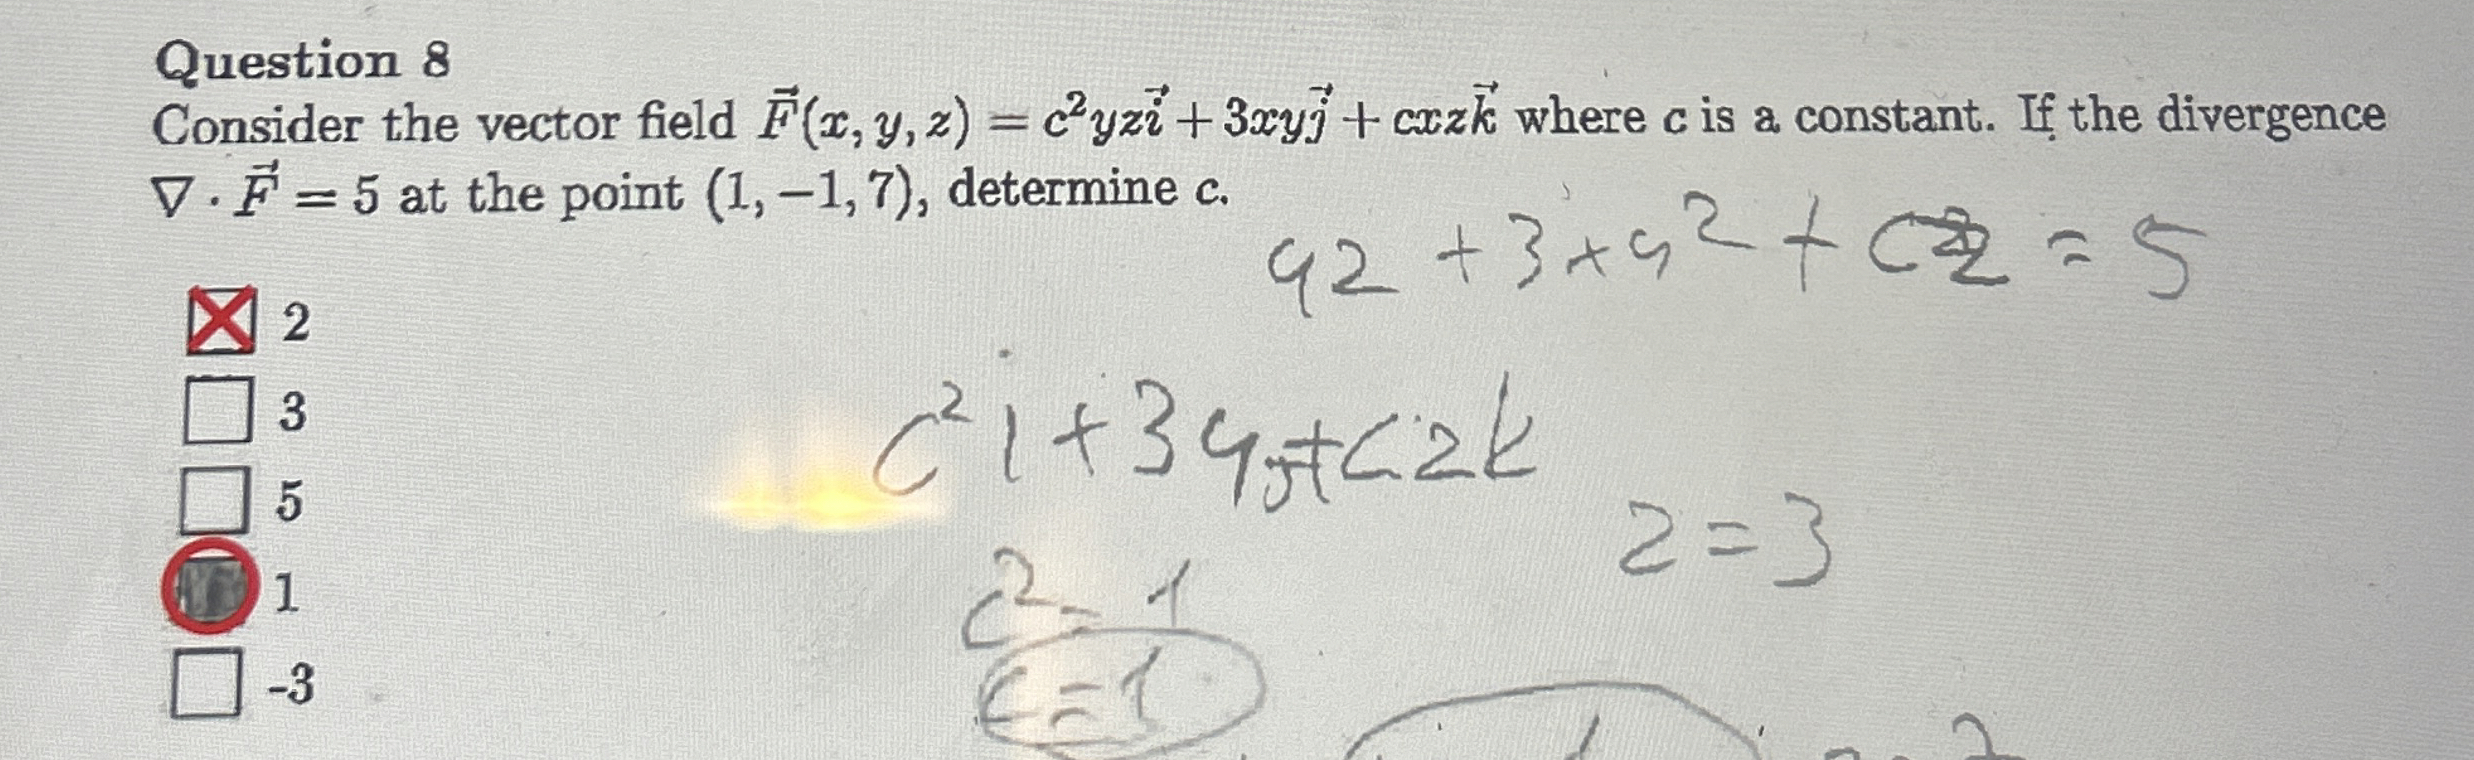 Question 8
Consider the vector field F⃗(x, y, z) = c²yzi⃗ + 3xyj⃗ + cxzk⃗ where c is a constant. If the divergence
∇ · F⃗ = 5 at the point (1, −1, 7), determine c.
y2 + 3xy² + cz = 5
2
3
c²i + 3yj + czk
5
z = 3
1
c² = 1
c = 1
-3